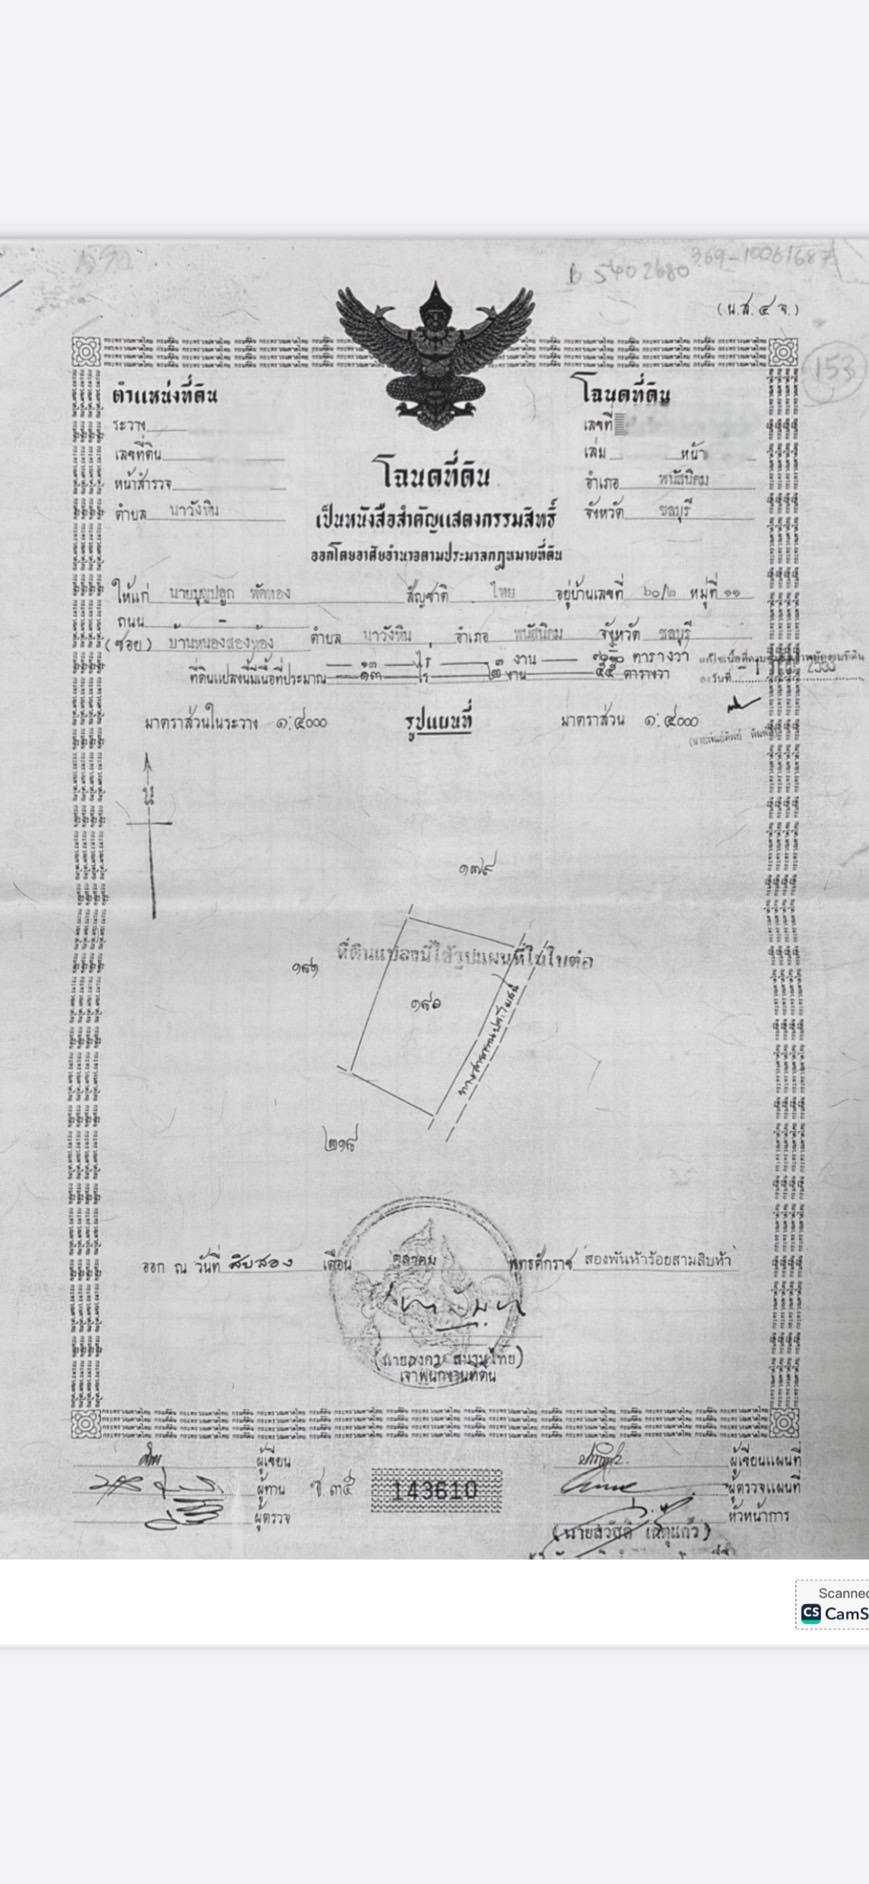 B 5402680
369-10061687
(น.ส. ๔ จ.)
153
ตำแหน่งที่ดิน
ระวาง
เลขที่ดิน
หน้าสำรวจ
ตำบล นาวังหิน
โฉนดที่ดิน
เลขที่
เล่ม หน้า
อำเภอ พนัสนิคม
จังหวัด ชลบุรี
โฉนดที่ดิน
เป็นหนังสือสำคัญแสดงกรรมสิทธิ์
ออกโดยอาศัยอำนาจตามประมวลกฎหมายที่ดิน
ให้แก่ นายบุญปลูก พัดทอง สัญชาติ ไทย อยู่บ้านเลขที่ ๖๐/๒ หมู่ที่ ๑๑
ถนน -
(ซอย) บ้านหนองสองห้อง ตำบล นาวังหิน อำเภอ พนัสนิคม จังหวัด ชลบุรี
๑๓ ไร่ งาน ตารางวา
ที่ดินแปลงนี้มีเนื้อที่ประมาณ ๑๓ ไร่ ๒ งาน ๕๕ ตารางวา
มาตราส่วนในระวาง ๑:๔๐๐๐ รูปแผนที่ มาตราส่วน ๑:๔๐๐๐
๑๗๙
ที่ดินแปลงนี้ใช้รูปแผนที่ในใบต่อ
๑๘๐
๒๑๘
ออก ณ วันที่ สิบสอง เดือน ตุลาคม พุทธศักราช สองพันห้าร้อยสามสิบห้า
เจ้าพนักงานที่ดิน
ผู้เขียน
ผู้ทาน
ผู้ตรวจ
ช. ๓๕
143610
ผู้เขียนแผนที่
ผู้ตรวจแผนที่
หัวหน้าการ
(นายสวัสดิ์ เนตุแก้ว)
Scanned
CS CamS